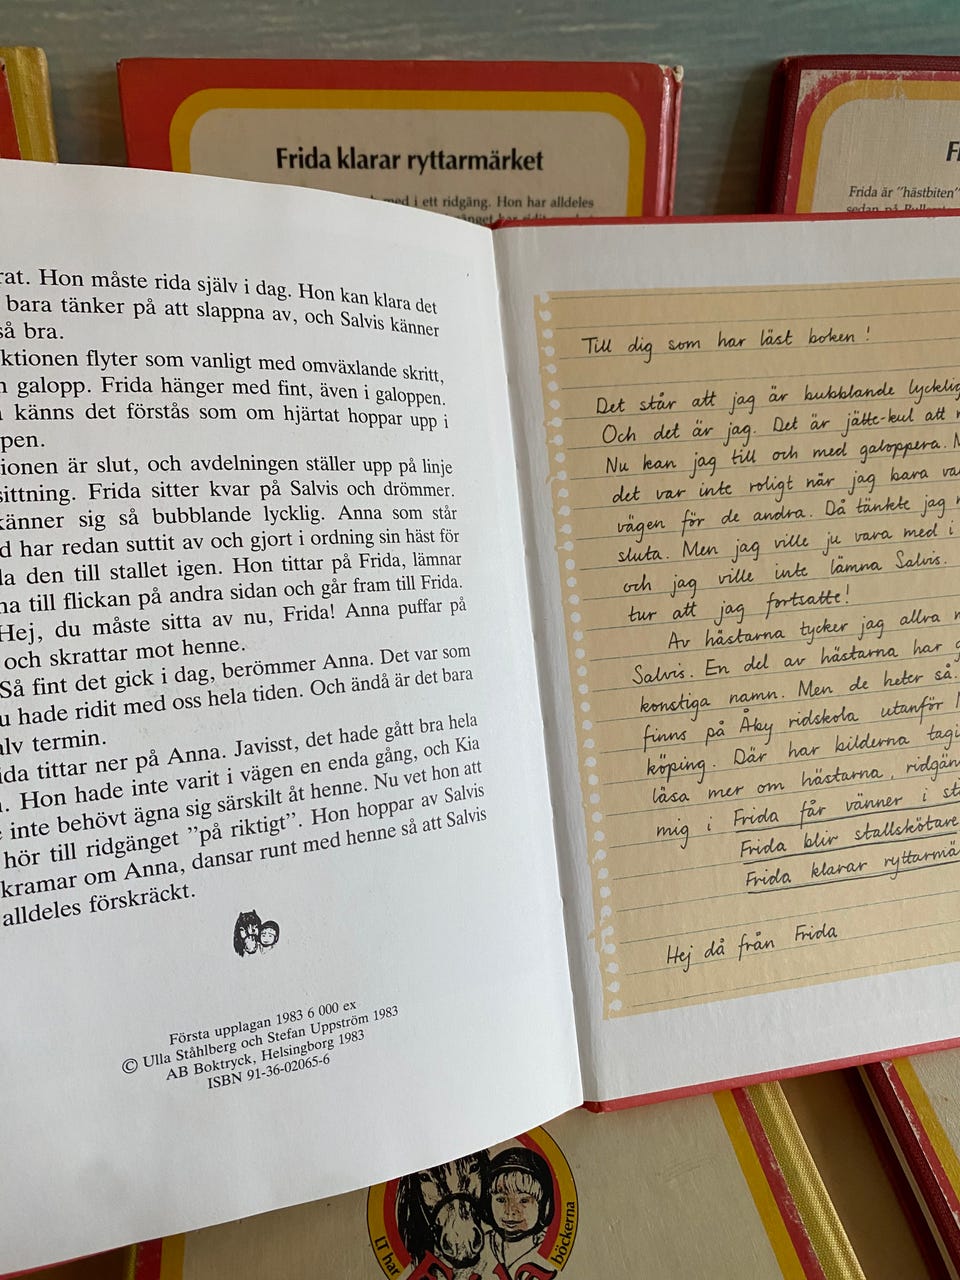 Frida klarar ryttarmärket
med i ett ridgäng. Hon har alldeles
Frida är "hästbiten"
sedan på
rat. Hon måste rida själv i dag. Hon kan klara det
bara tänker på att slappna av, och Salvis känner
så bra.
ktionen flyter som vanligt med omväxlande skritt,
galopp. Frida hänger med fint, även i galoppen.
känns det förstås som om hjärtat hoppar upp i
pen.
ionen är slut, och avdelningen ställer upp på linje
sittning. Frida sitter kvar på Salvis och drömmer.
känner sig så bubblande lycklig. Anna som står
d har redan suttit av och gjort i ordning sin häst för
la den till stallet igen. Hon tittar på Frida, lämnar
na till flickan på andra sidan och går fram till Frida.
Hej, du måste sitta av nu, Frida! Anna puffar på
och skrattar mot henne.
Så fint det gick i dag, berömmer Anna. Det var som
u hade ridit med oss hela tiden. Och ändå är det bara
alv termin.
ida tittar ner på Anna. Javisst, det hade gått bra hela
Hon hade inte varit i vägen en enda gång, och Kia
inte behövt ägna sig särskilt åt henne. Nu vet hon att
hör till ridgänget "på riktigt". Hon hoppar av Salvis
kramar om Anna, dansar runt med henne så att Salvis
alldeles förskräckt.
Första upplagan 1983 6 000 ex
© Ulla Ståhlberg och Stefan Uppström 1983
AB Boktryck, Helsingborg 1983
ISBN 91-36-02065-6
Till dig som har läst boken!
Det står att jag är bubblande lycklig
Och det är jag. Det är jätte-kul att
Nu kan jag till och med galoppera.
det var inte roligt när jag bara va
vägen för de andra. Då tänkte jag
sluta. Men jag ville ju vara med i
och jag ville inte lämna Salvis.
tur att jag fortsatte!
Av hästarna tycker jag allra
Salvis. En del av hästarna har
konstiga namn. Men de heter så.
finns på Åby ridskola utanför
köping. Där har bilderna tagi
läsa mer om hästarna, ridgän
mig i Frida får vänner i st
Frida blir stallskötare
Frida klarar ryttarmä
Hej då från Frida
LT har
böckerna